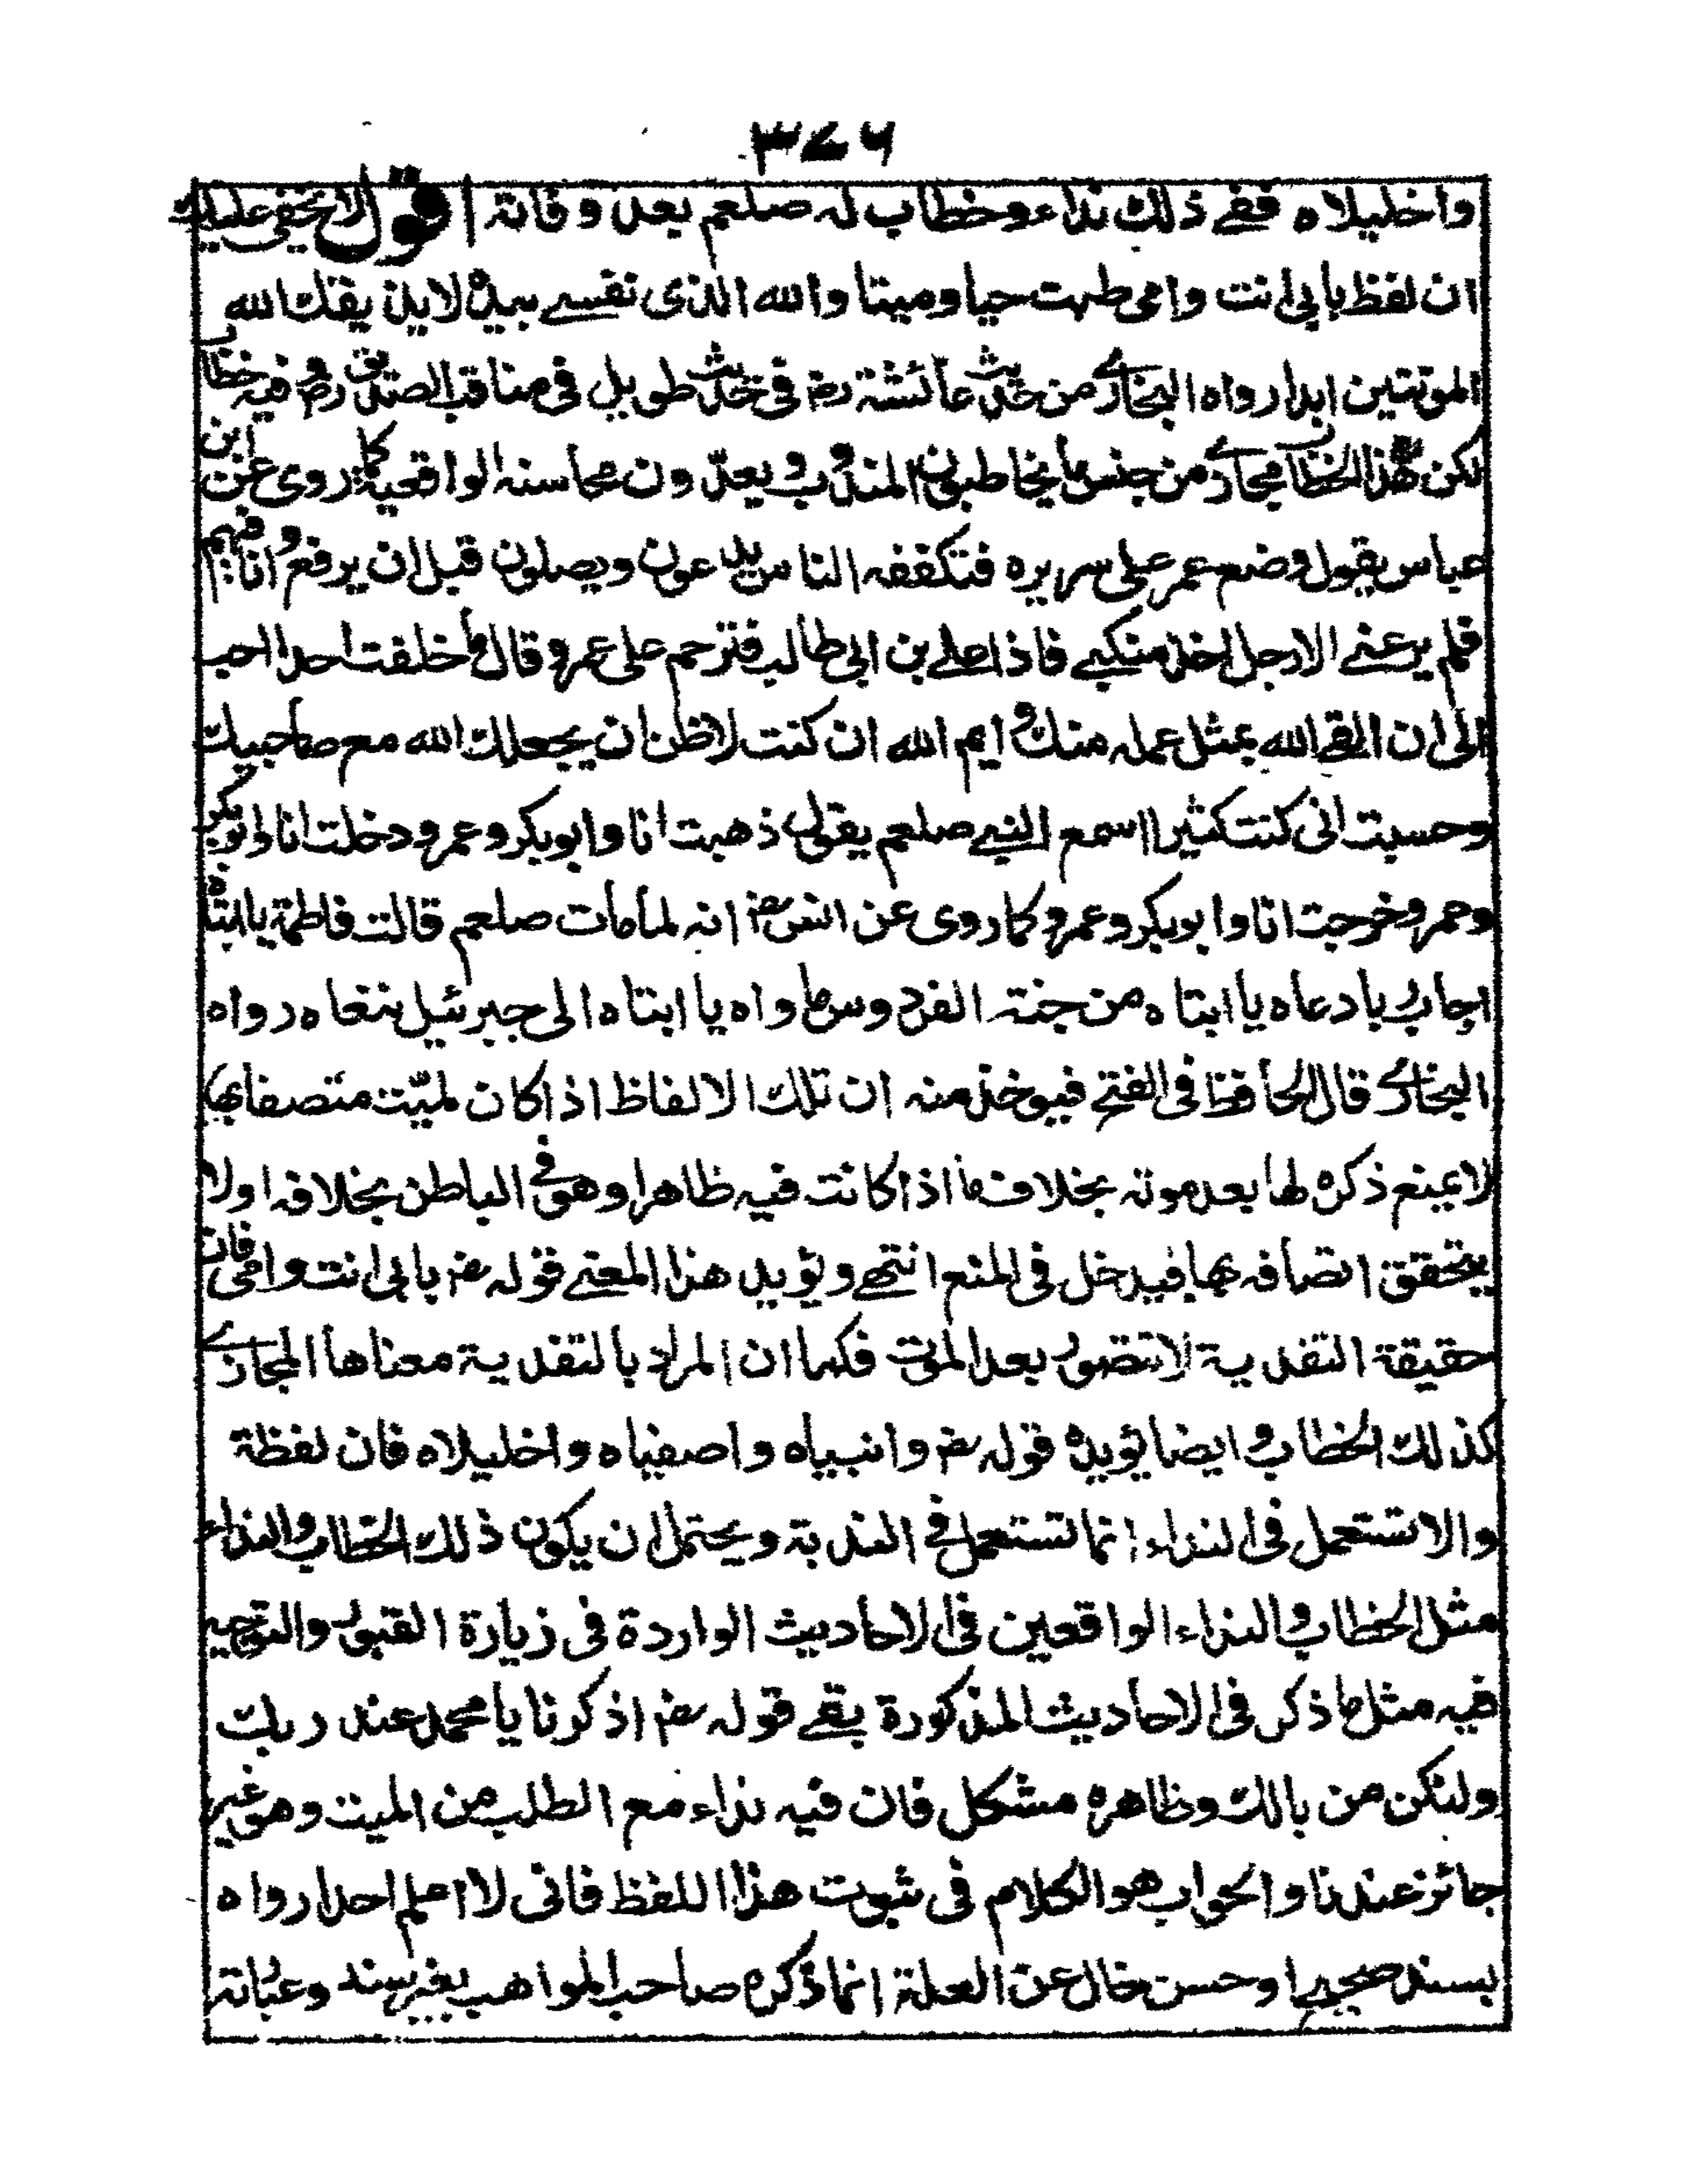 ٣٧٦
واخليلاه ففي ذلك نداء وخطاب له صلعم بعد وفاته اقول لا يخفى عليك
ان لفظ بابي انت وامي طبت حيا وميتا والله الذي نفسي بيده لا يذيقك الله
الموتتين ابدا رواه البخاري من حديث عائشة رض في حديث طويل في مناقب الصديق رض وفيه خطاب
لكن هذا الخطاب مجازي من جنس ما يخاطبون المندوب ويعدّون محاسنه الواقعية كما روى عن ابن
عباس يقول وضع عمر على سريره فتكففه الناس يدعون ويصلون قبل ان يرفع وانا فيهم
فلم يرعني الا رجل اخذ منكبي فاذا علي بن ابي طالب فترحم على عمر وقال ما خلفت احدا احب
الي ان القى الله بمثل عمله منك وايم الله ان كنت لاظن ان يجعلك الله مع صاحبيك
وحسبت اني كنت كثيرا اسمع النبي صلعم يقول ذهبت انا وابوبكر وعمر ودخلت انا وابوبكر
وعمر وخرجت انا وابوبكر وعمر وكما روى عن انس رض انه لما مات صلعم قالت فاطمة يا ابتاه
اجاب ربا دعاه يا ابتاه من جنة الفردوس ماواه يا ابتاه الى جبرئيل ننعاه رواه
البخاري قال الحافظ في الفتح فيوخذ منه ان تلك الالفاظ اذا كان لميّت متصفا بها
لا يمنع ذكره لها بعد موته بخلاف ما اذا كانت فيه ظاهرا وهو في الباطن بخلافه اولا
يتحقق اتصافه بها فيدخل في المنع انتهى ويؤيد هذا المعنى قوله رض بابي انت وامي فان
حقيقة التفدية لا تتصور بعد الموت فكما ان المراد بالتفدية معناها المجازي
كذلك الخطاب وايضا يؤيده قوله رض وانبياه واصفياه واخليلاه فان لفظة
وا لا تستعمل في النداء انما تستعمل في الندبة ويحتمل ان يكون ذلك الخطاب والنداء
مثل الخطاب والنداء الواقعين في الاحاديث الواردة في زيارة القبور والتوجيه
فيه مثل ما ذكر في الاحاديث المذكورة بقي قوله رض اذكرنا يا محمد عند ربك
ولنكن من بالك وظاهره مشكل فان فيه نداء مع الطلب من الميت وهو غير
جائز عندنا والجواب هو الكلام في ثبوت هذا اللفظ فاني لا اعلم احدا رواه
بسند صحيح او حسن خال عن العلة انما ذكره صاحب المواهب بغير سند وعبارته